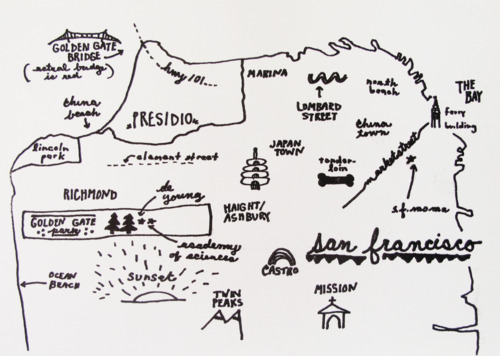 GOLDEN GATE
BRIDGE
(actual bridge
is red)
hwy 101
MARINA
LOMBARD
STREET
north
beach
THE
BAY
ferry
building
china
beach
PRESIDIO
china
town
market street
lincoln
park
clement street
JAPAN
TOWN
tender-
loin
s.f. moma
RICHMOND
de
young
GOLDEN GATE
park
HAIGHT/
ASHBURY
academy
of sciences
san francisco
OCEAN
BEACH
sunset
CASTRO
TWIN
PEAKS
MISSION